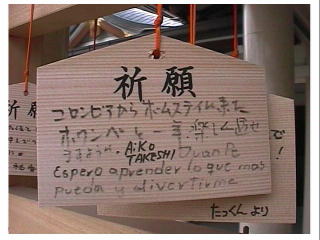 祈願
コロンビアから ホームステイに来た
ホワンペと一年、楽しく過せ
ますように。AiKO
TAKESHI Juan Pe
Espero aprender lo que mas
pueda y divertirme
たっくん より
で!
願